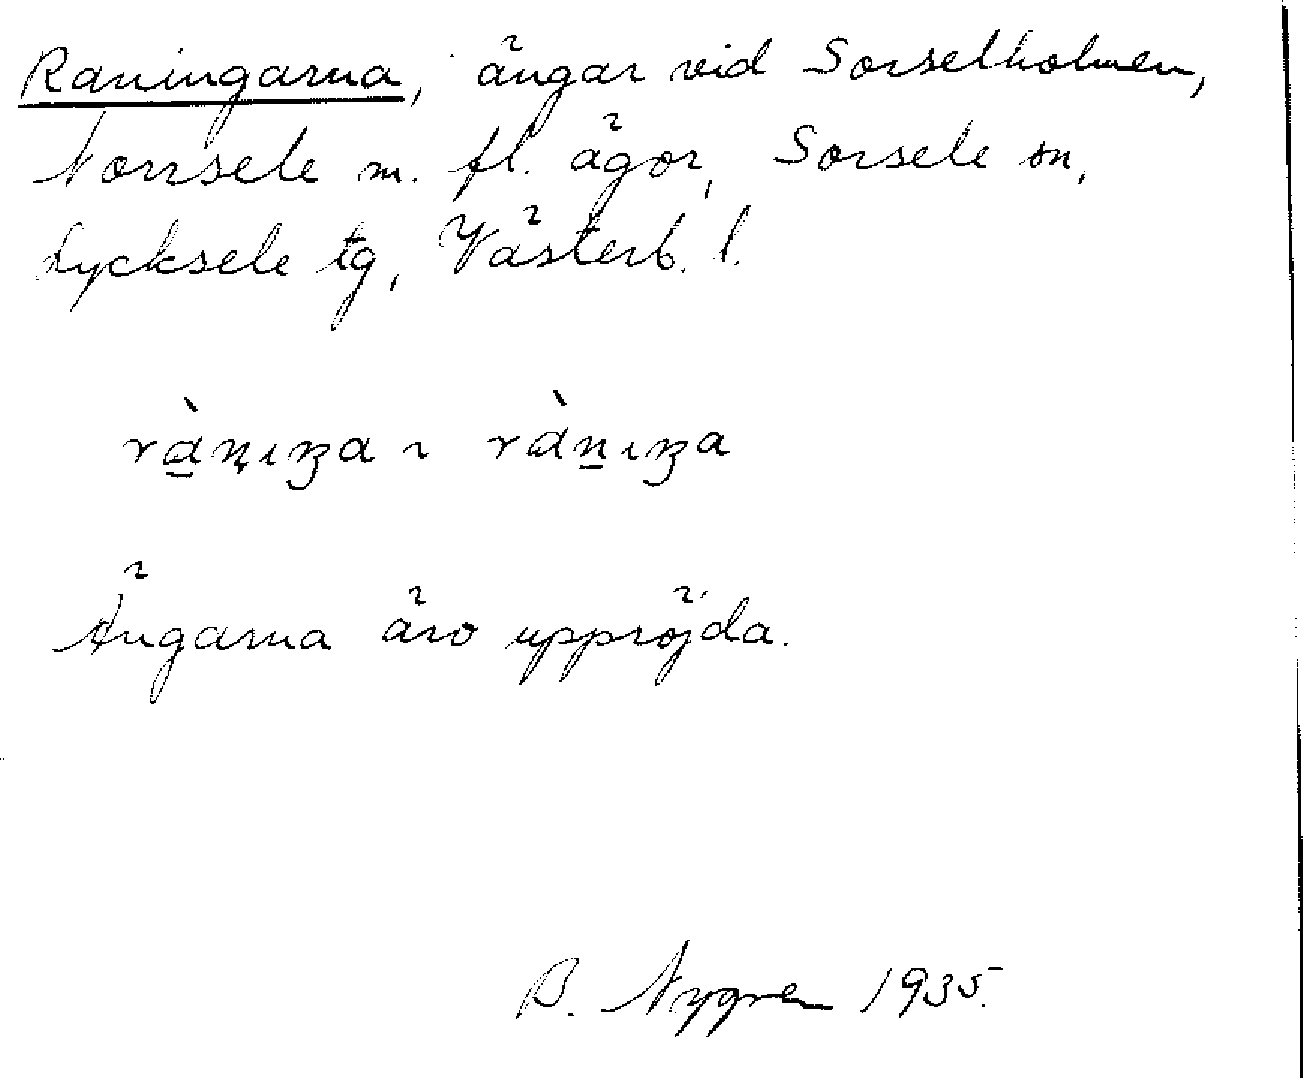 Raningarna, ängar vid Sorselholmen,
Norrsele m. fl. ägor, Sorsele sn,
Lycksele tg, Västerb. l.
ràṉıŋa ~ ràṉıŋa
Ängarna äro uppröjda.
B. Nygren 1935.